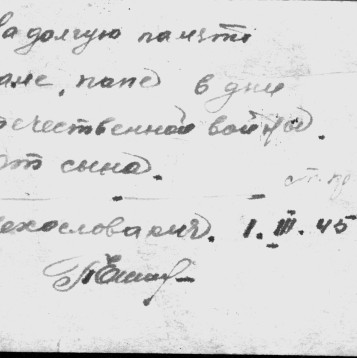 а долгую память
аме, папе в дни
ечественной войны.
от сына.
ехословакия. 1. III. 45